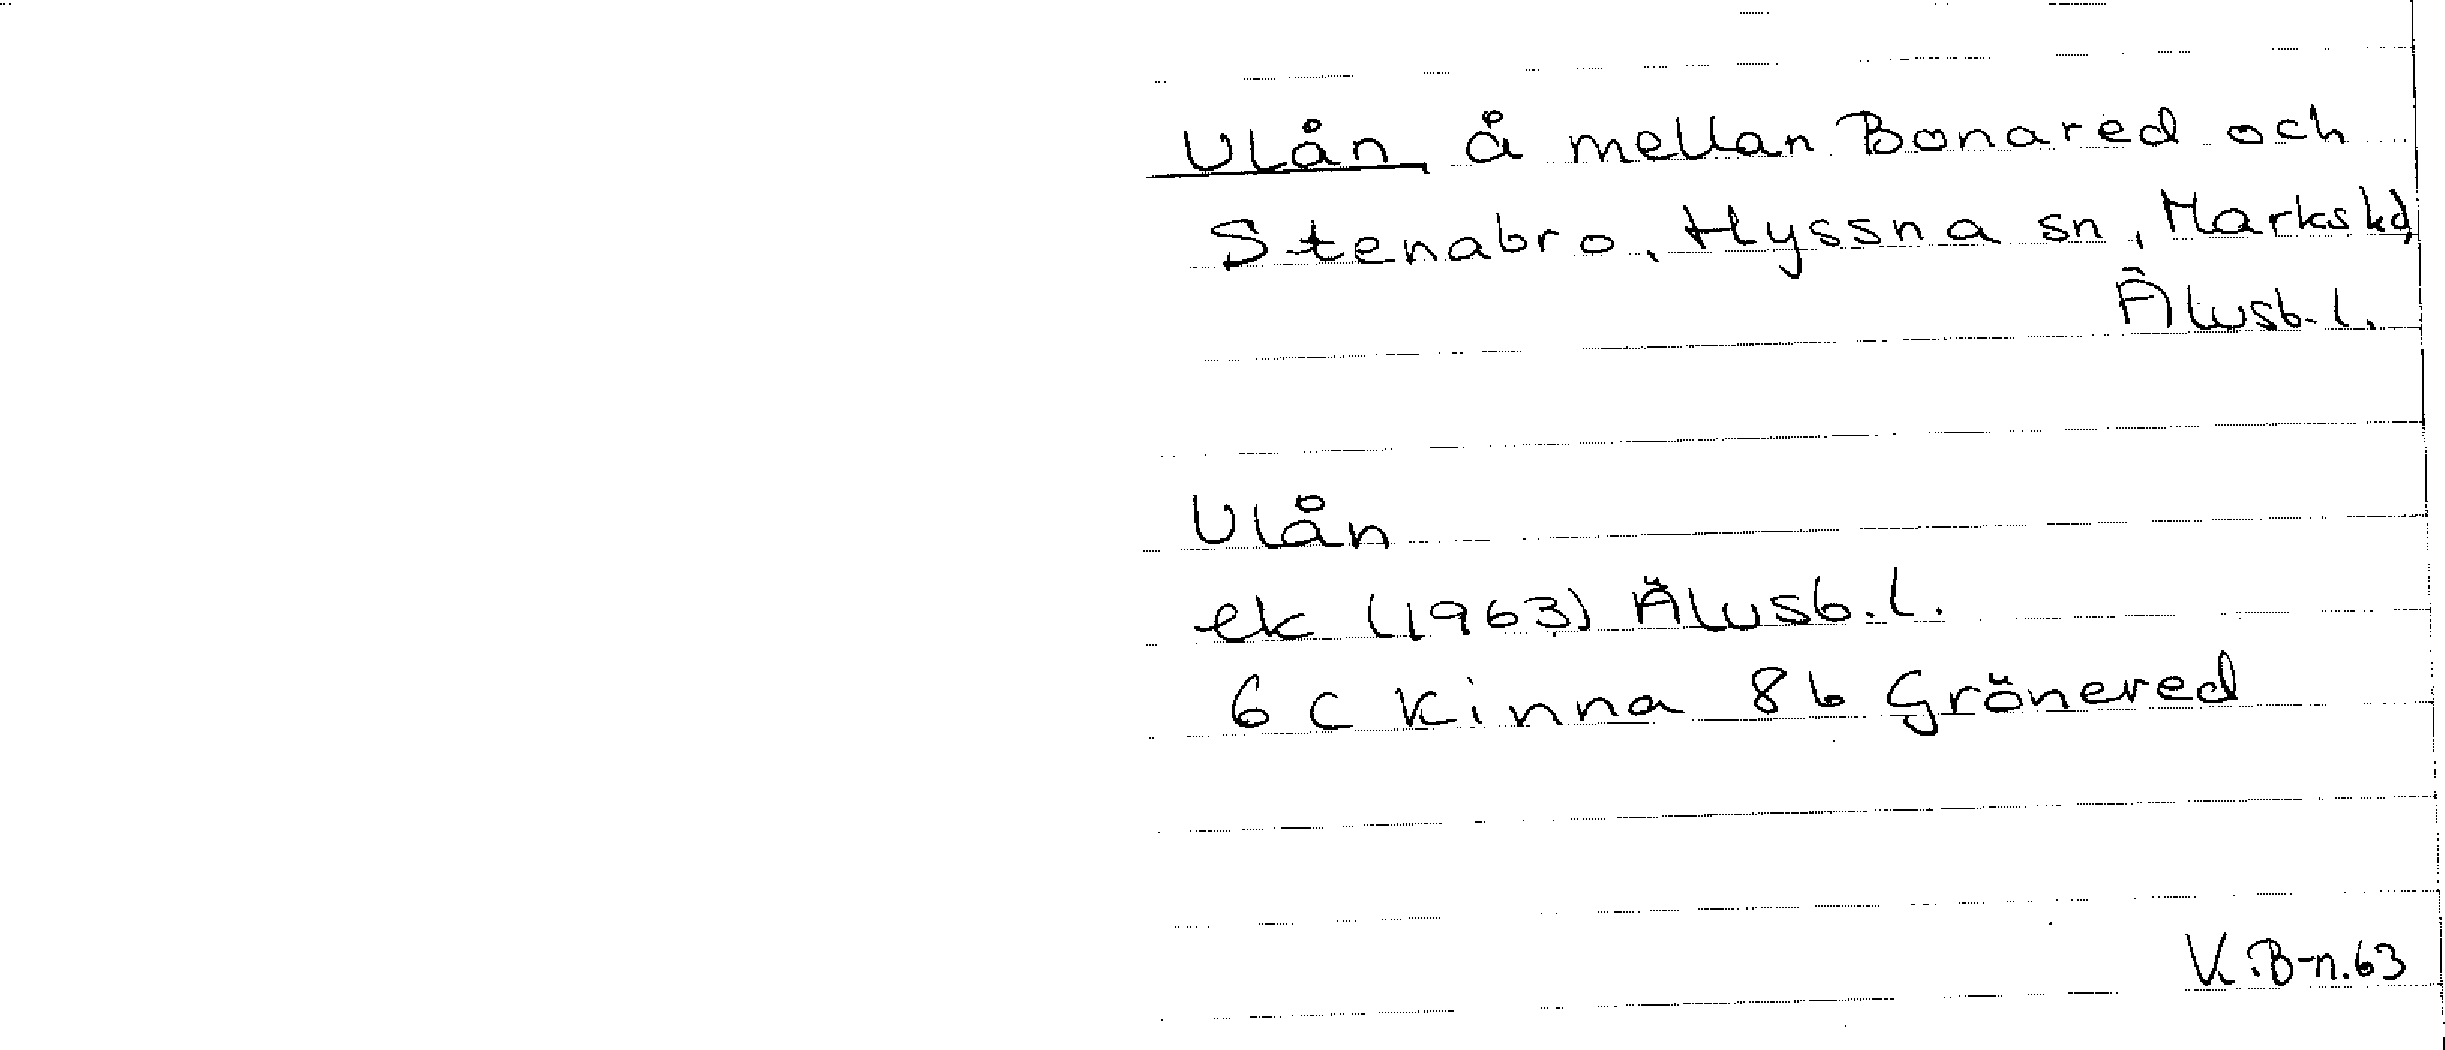 Ulån, å mellan Bonared och
Stenabro, Hyssna sn, Marks hd,
Älvsb. l.
Ulån
ek (1963) Älvsb. l.
6 C Kinna 8 b Grönered
K. B-n. 63